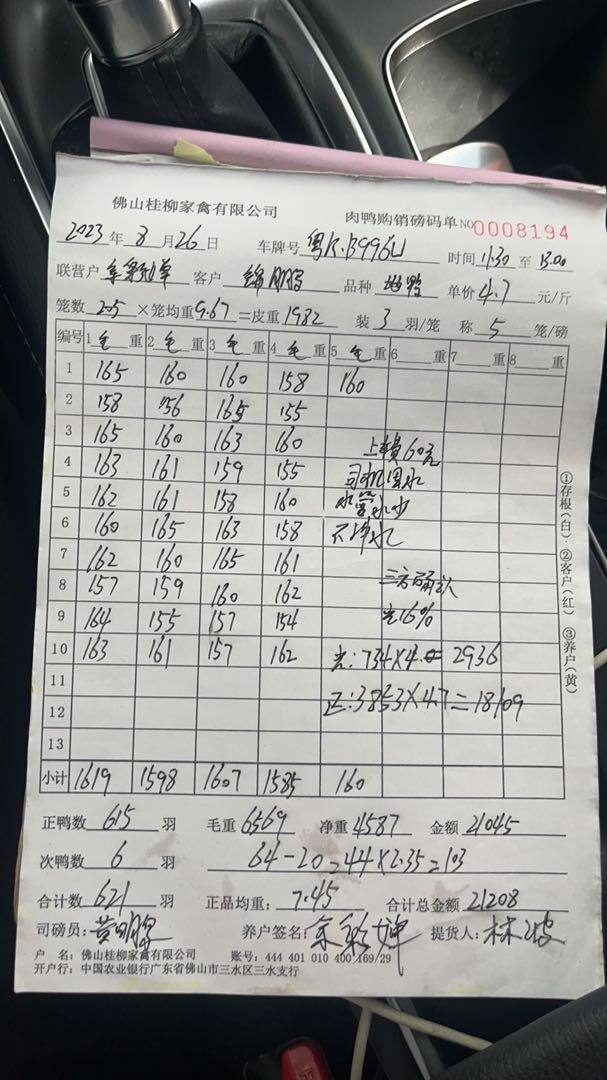 佛山桂柳家禽有限公司 肉鸭购销磅码单 NO 0008194
2023年 8月26日 车牌号 粤K·B996U 时间 11:30 至 13:00
联营户 客户 品种 单价 4.7 元/斤
笼数 205 ×笼均重 9.67 =皮重 1982 装 3 羽/笼 称 5 笼/磅
编号 1 毛 重 2 毛 重 3 毛 重 4 毛 重 5 毛 重 6 重 7 重 8 重
1 165 160 160 158 160
2 158 156 165 155
3 165 160 163 160 上车费60元
4 163 161 159 155 司机
5 162 161 158 160 水管水少
6 160 165 163 158 不冲水
7 162 160 165 161
8 157 159 160 162 三方确认
9 164 155 157 154 光16%
10 163 161 157 162 光:734×4.0=2936
11 正:3853×4.7=18109
12
13
小计 1619 1598 1607 1585 160
正鸭数 615 羽 毛重 6569 净重 4587 金额 21045
次鸭数 6 羽 64-20=44×2.35=103
合计数 621 羽 正品均重: 7.45 合计总金额 21208
司磅员: 养户签名: 提货人:
户 名: 佛山桂柳家禽有限公司 账号: 444 401 010 400 169/29
开户行: 中国农业银行广东省佛山市三水区三水支行
①存根(白)·②客户(红) ③养户(黄)